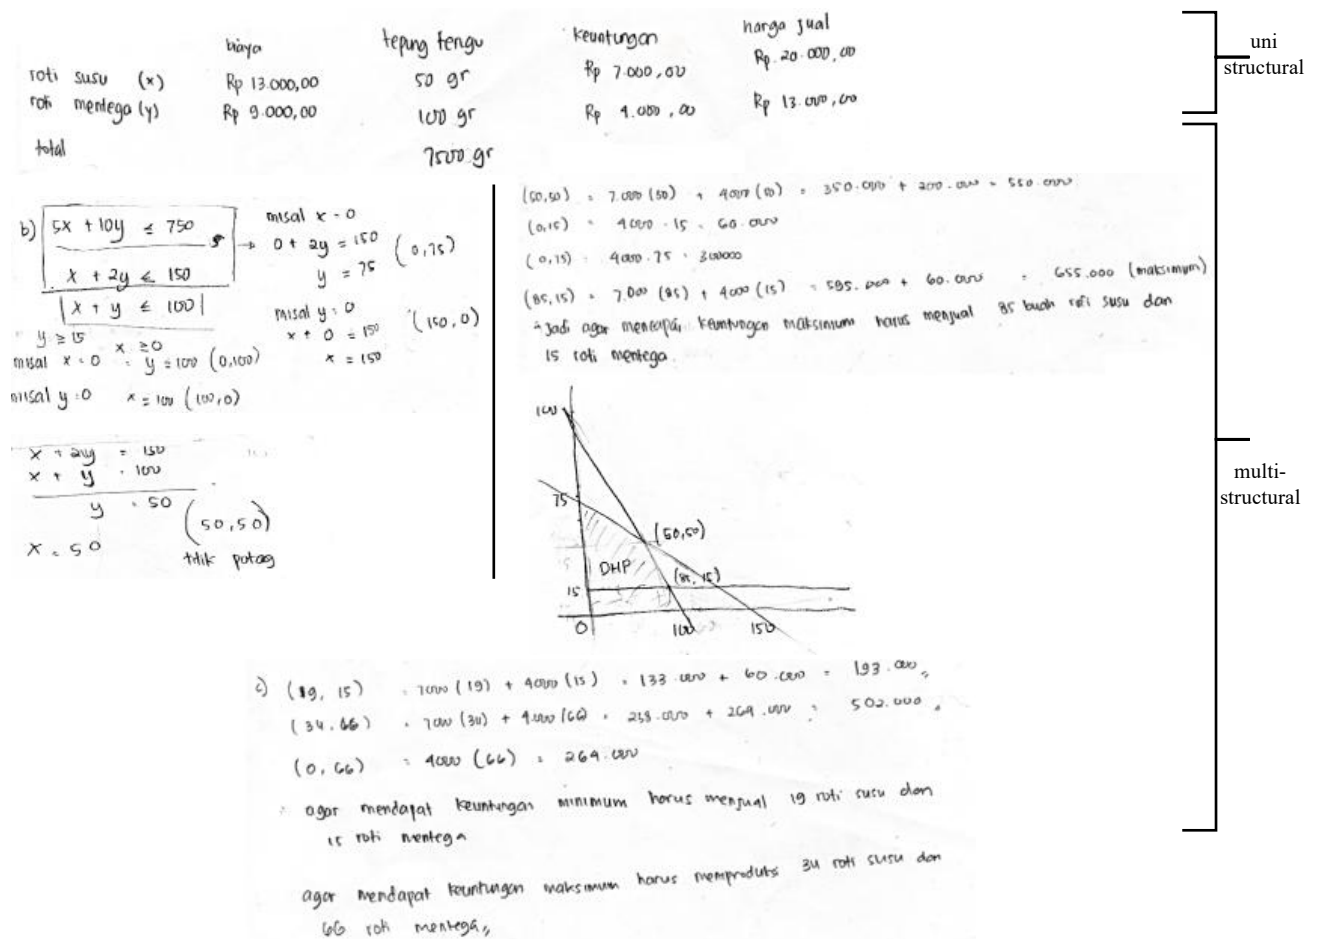 biaya tepung terigu keuntungan harga jual
roti susu (x) Rp 13.000,00 50 gr Rp 7.000,00 Rp. 20.000,00
roti mentega (y) Rp 9.000,00 100 gr Rp 4.000,00 Rp 13.000,00
total 7500 gr
uni
structural
b) 5x + 10y ≤ 750
x + 2y ≤ 150
x + y ≤ 100
y ≥ 15 x ≥ 0
misal x = 0 y = 100 (0,100)
misal y = 0 x = 100 (100,0)
misal x = 0
0 + 2y = 150 (0,75)
y = 75
misal y = 0
x + 0 = 150 (150,0)
x = 150
x + 2y = 150
x + y = 100
y = 50
x = 50
(50,50)
titik potong
(50,50) = 7.000 (50) + 4000 (50) = 350.000 + 200.000 = 550.000
(0,15) = 4000 · 15 = 60.000
(0,75) = 4000 . 75 = 300000
(85,15) = 7.000 (85) + 4000 (15) = 595.000 + 60.000 = 655.000 (maksimum)
∴ Jadi agar mencapai keuntungan maksimum harus menjual 85 buah roti susu dan
15 roti mentega.
100
75
(50,50)
DHP
(85,15)
15
0 100 150
multi-
structural
c) (19, 15) = 7000 (19) + 4000 (15) = 133.000 + 60.000 = 193.000
(34,66) = 7000 (34) + 4.000 (66) = 238.000 + 264.000 = 502.000
(0,66) = 4000 (66) = 264.000
∴ agar mendapat keuntungan minimum harus menjual 19 roti susu dan
15 roti mentega
agar mendapat keuntungan maksimum harus memproduksi 34 roti susu dan
66 roti mentega